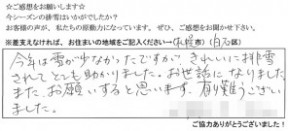 ☆ご感想をお願いします☆
今シーズンの排雪はいかがでしたか?
お客様の声が、私たちの原動力になっています。ぜひ、ご感想をお聞かせ下さい。
※差支えなければ、お住まいの地域をご記入ください→(札幌市)(白石区)
今年は雪が少なかったですが、きれいに排雪
されてとても助かりました。お世話になりました。
また、お願いすると思います。有り難うござい
ました。
ご協力ありがとうございました!